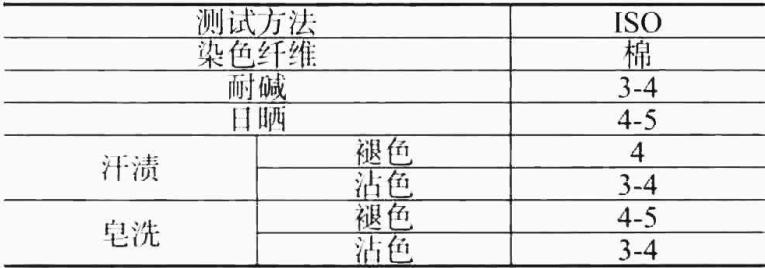 测试方法 ISO
染色纤维 棉
耐碱 3-4
日晒 4-5
汗渍 褪色 4
沾色 3-4
皂洗 褪色 4-5
沾色 3-4